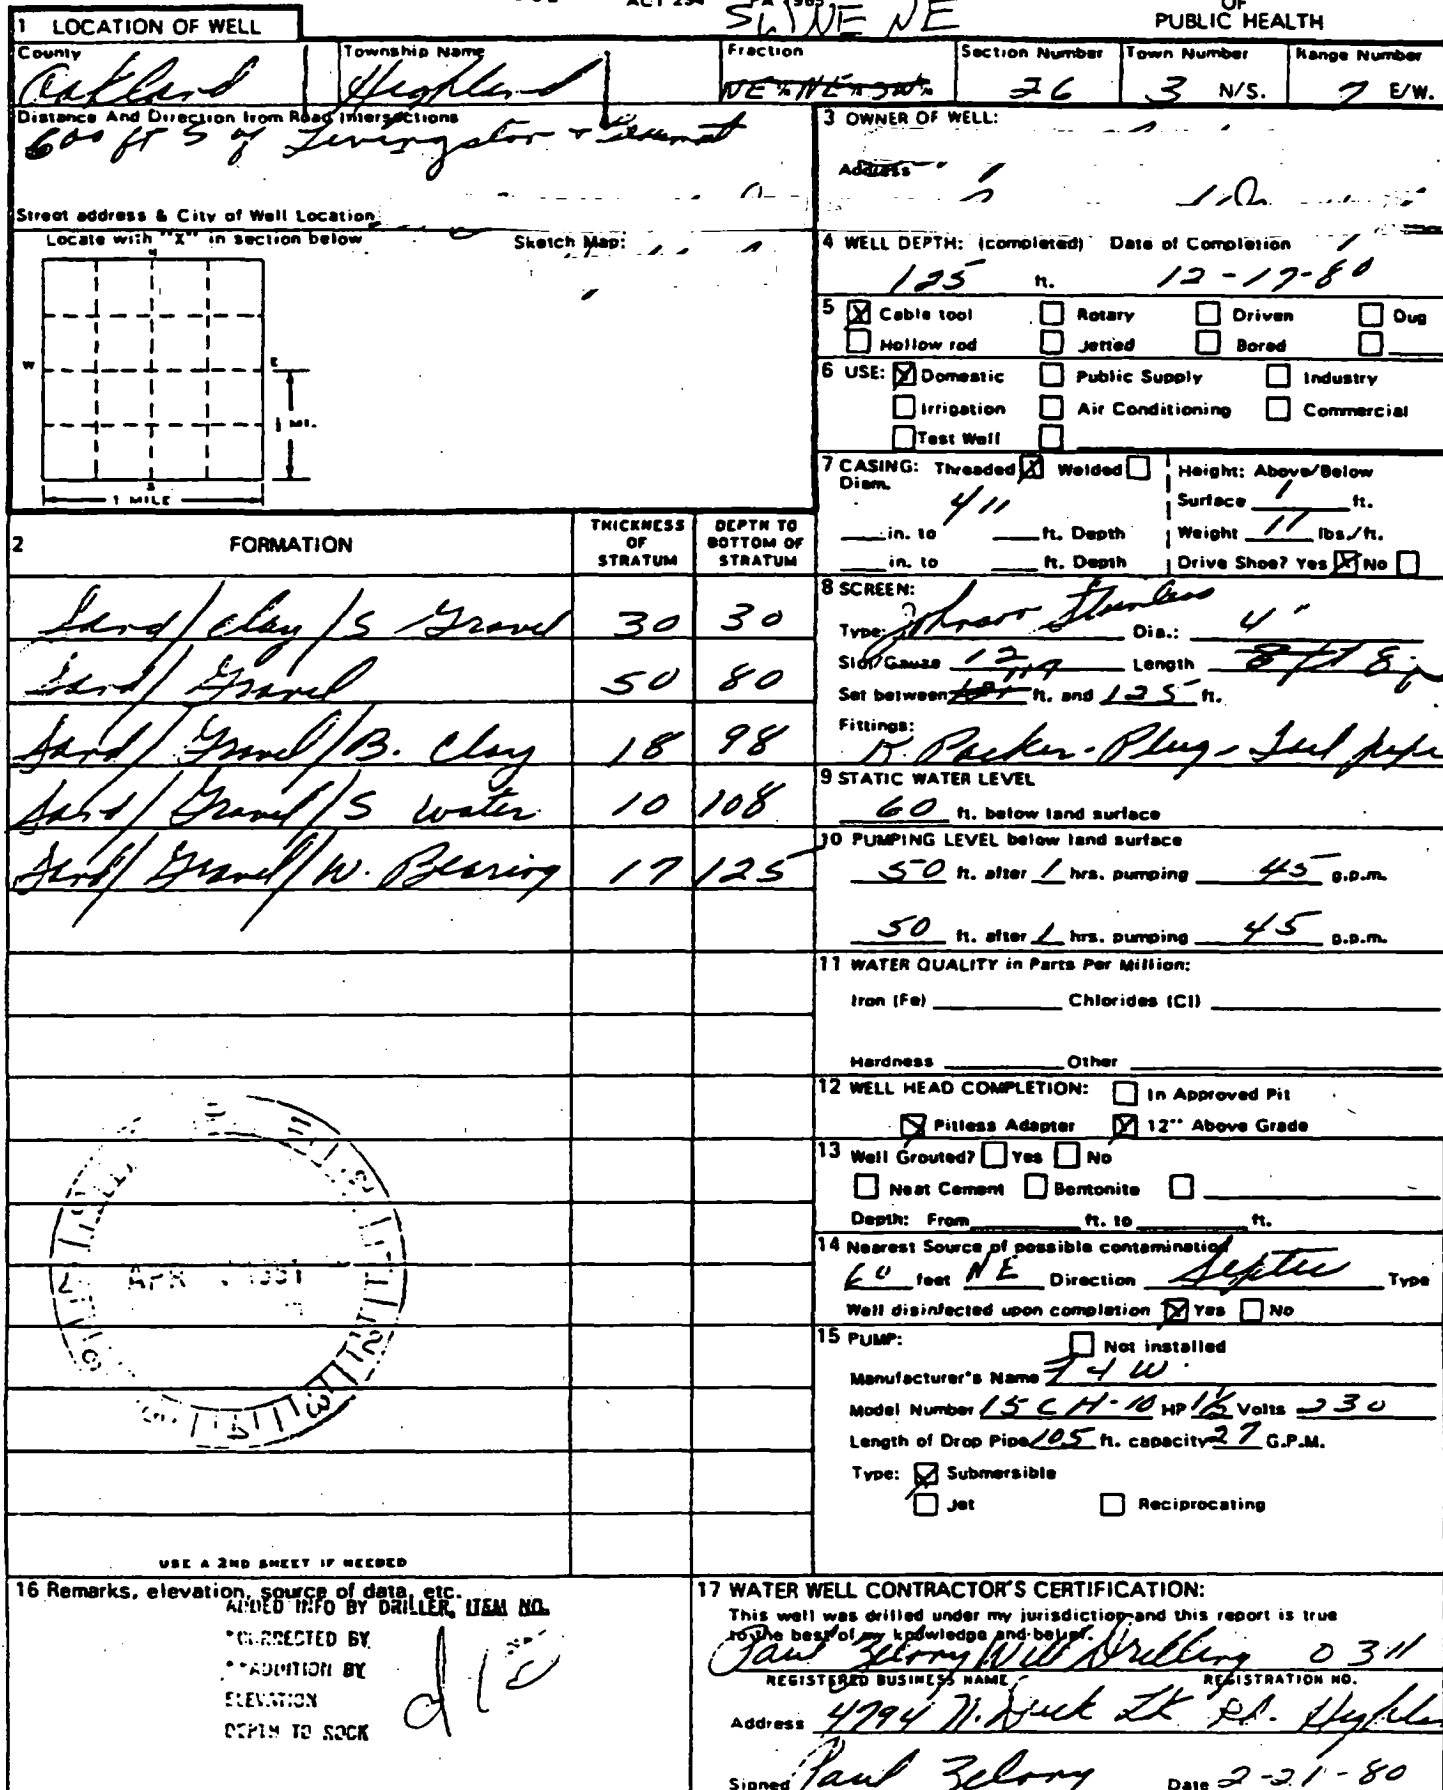 ACT 294 PA 1965
OF
PUBLIC HEALTH
SW NE NE
1 LOCATION OF WELL
County Township Name Fraction Section Number Town Number Range Number
Oakland Highland NE¼ NE¼ SW¼ 26 3 N/S. 7 E/W.
Distance And Direction from Road Intersections
600 ft S of Livingston +
Street address & City of Well Location
Locate with "X" in section below Sketch Map:
N
W E
S
½ MI.
1 MILE
3 OWNER OF WELL:
Address
4 WELL DEPTH: (completed) Date of Completion
125 ft. 12-17-80
5 ☒ Cable tool ☐ Rotary ☐ Driven ☐ Dug
☐ Hollow rod ☐ Jetted ☐ Bored ☐
6 USE: ☒ Domestic ☐ Public Supply ☐ Industry
☐ Irrigation ☐ Air Conditioning ☐ Commercial
☐ Test Well ☐
7 CASING: Threaded ☒ Welded ☐ Height: Above/Below
Diam. Surface 1 ft.
4"
in. to ft. Depth Weight 11 lbs./ft.
in. to ft. Depth Drive Shoe? Yes ☒ No ☐
2 FORMATION THICKNESS OF STRATUM DEPTH TO BOTTOM OF STRATUM
Sand/Clay/S Gravel 30 30
Sand/Gravel 50 80
Sand/Gravel/B. Clay 18 98
Sand/Gravel/S water 10 108
Sand/Gravel/W. Bearing 17 125
USE A 2ND SHEET IF NEEDED
8 SCREEN:
Type: Johnson Stainless Dia.: 4"
Slot/Gauze 12 Length
Set between 117 ft. and 125 ft.
Fittings:
K Packer - Plug -
9 STATIC WATER LEVEL
60 ft. below land surface
10 PUMPING LEVEL below land surface
50 ft. after 1 hrs. pumping 45 g.p.m.
50 ft. after 1 hrs. pumping 45 g.p.m.
11 WATER QUALITY in Parts Per Million:
Iron (Fe) Chlorides (Cl)
Hardness Other
12 WELL HEAD COMPLETION: ☐ In Approved Pit
☒ Pitless Adapter ☒ 12" Above Grade
13 Well Grouted? ☐ Yes ☐ No
☐ Neat Cement ☐ Bentonite ☐
Depth: From ft. to ft.
14 Nearest Source of possible contamination
60 feet NE Direction Septic Type
Well disinfected upon completion ☒ Yes ☐ No
15 PUMP: ☐ Not installed
Manufacturer's Name F & W
Model Number 15CH-10 HP 1½ Volts 230
Length of Drop Pipe 105 ft. capacity 27 G.P.M.
Type: ☒ Submersible
☐ Jet ☐ Reciprocating
APR 1981
16 Remarks, elevation, source of data, etc.
ADDED INFO BY DRILLER, ITEM NO.
*CORRECTED BY
**ADDITION BY
ELEVATION
DEPTH TO ROCK
17 WATER WELL CONTRACTOR'S CERTIFICATION:
This well was drilled under my jurisdiction and this report is true
to the best of my knowledge and belief.
Paul Zelony Well Drilling 0311
REGISTERED BUSINESS NAME REGISTRATION NO.
Address 4794 N. Duck Lk Rd.
Signed Paul Zelony Date 2-21-80